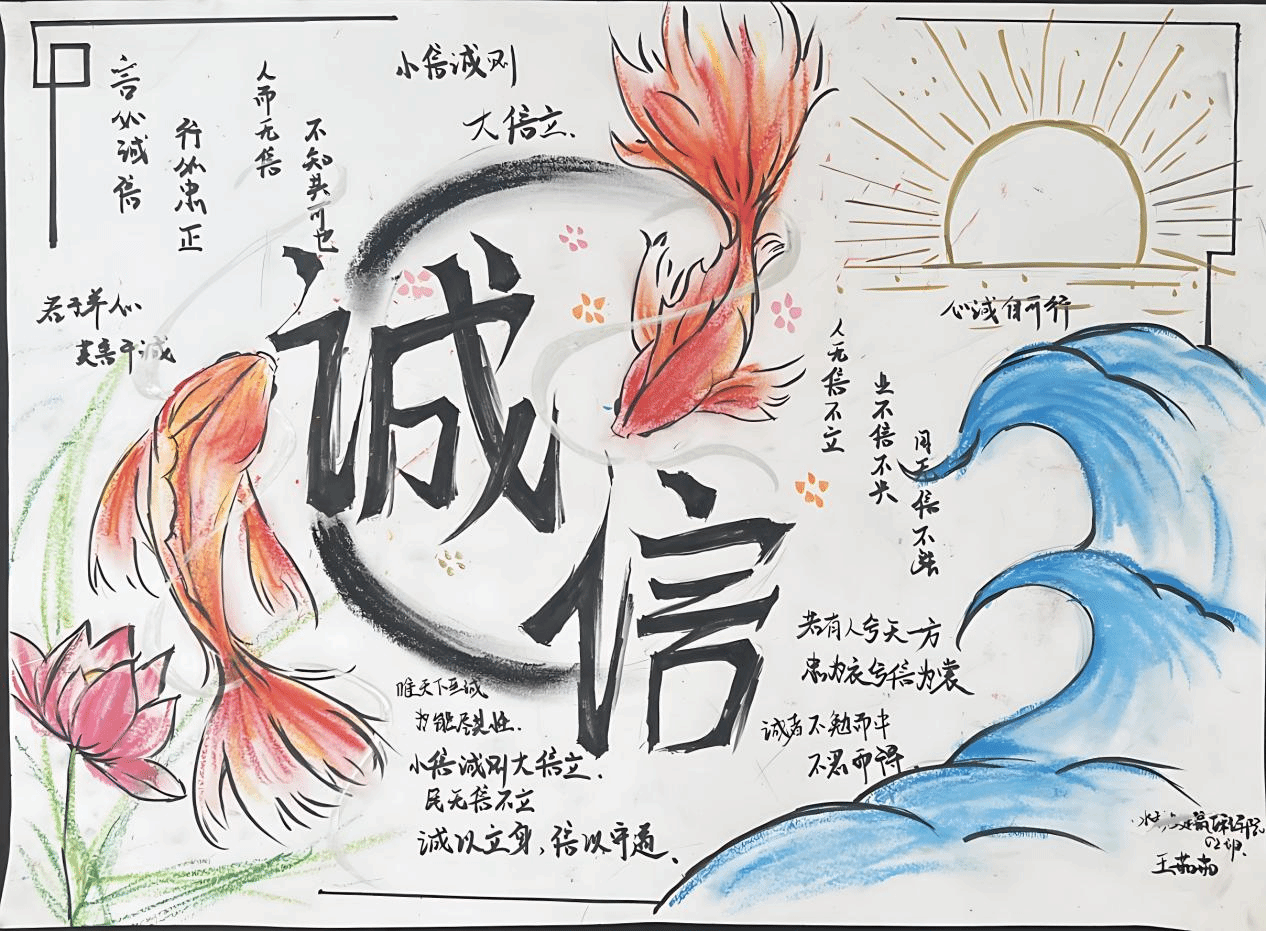 言必诚信
行必忠正
人而无信
不知其可也
小信诚则
大信立.
诚
信
心诚自可行
人无信不立
业不信不兴
若有人兮天一方
忠为衣兮信为裳
诚者不勉而中
不思而得.
唯天下至诚
为能尽其性.
小信诚则大信立.
民无信不立
诚以立身,信以守道.